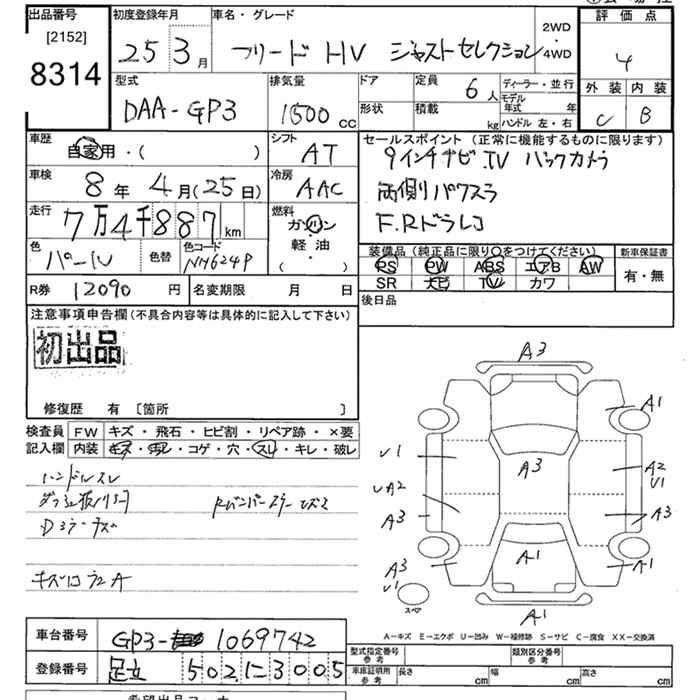 出品番号 初度登録年月 車名・グレード 評価点
[2152]
8314
25 3月 フリード HV ジャストセレクション 2WD・4WD 4
型式 排気量 ドア 定員 6人 ディーラー・並行 外装 内装
DAA-GP3 1500 CC 形状 積載 kg モデル年式 年 ハンドル 左・右 C B
車歴 自家用・( ) シフト AT セールスポイント (正常に機能するものに限ります)
9インチナビ.TV バックカメラ
車検 8年4月(25日) 冷房 AAC 両側パワスラ
走行 7万4千887km 燃料 ガソリン・軽油・( ) F.Rドラレコ
色 パール 色替 色コード NH624P 装備品 (純正品に限り○をつけてください) 新車保証書
PS PW ABS エアB AW 有・無
SR ナビ TV カワ
R券 12090円 名変期限 月 日 後日品
注意事項申告欄(不具合内容等は具体的に記入して下さい)
初出品
修復歴 有 〔箇所 〕
検査員 FW キズ・飛石・ヒビ割・リペア跡・×要
記入欄 内装 キズ・汚レ・コゲ・穴・スレ・キレ・破レ
ハンドルスレ
A3
A1
U1
A3
A2
U1
UA2
A3
A3
A3
U1
A1
A1
スペア
A1
A-キズ E-エクボ U-凹み W-補修跡 S-サビ C-腐食 XX-交換済
車台番号 GP3- 1069742
登録番号 足立 502 に 3005
型式指定番号 参考 類別区分番号 参考
車庫証明用 参考 長さ cm 幅 cm 高さ cm